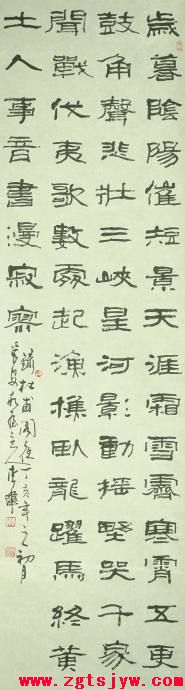 歲暮陰陽催短景天涯霜雪霽寒宵五更
鼓角聲悲壯三峽星河影動搖埜哭千家
聞戰伐夷歌數處起漁樵臥龍躍馬終黃
土人事音書漫寂寥
錄杜甫閣夜丁亥年之初月
www.zgtsjyw.com